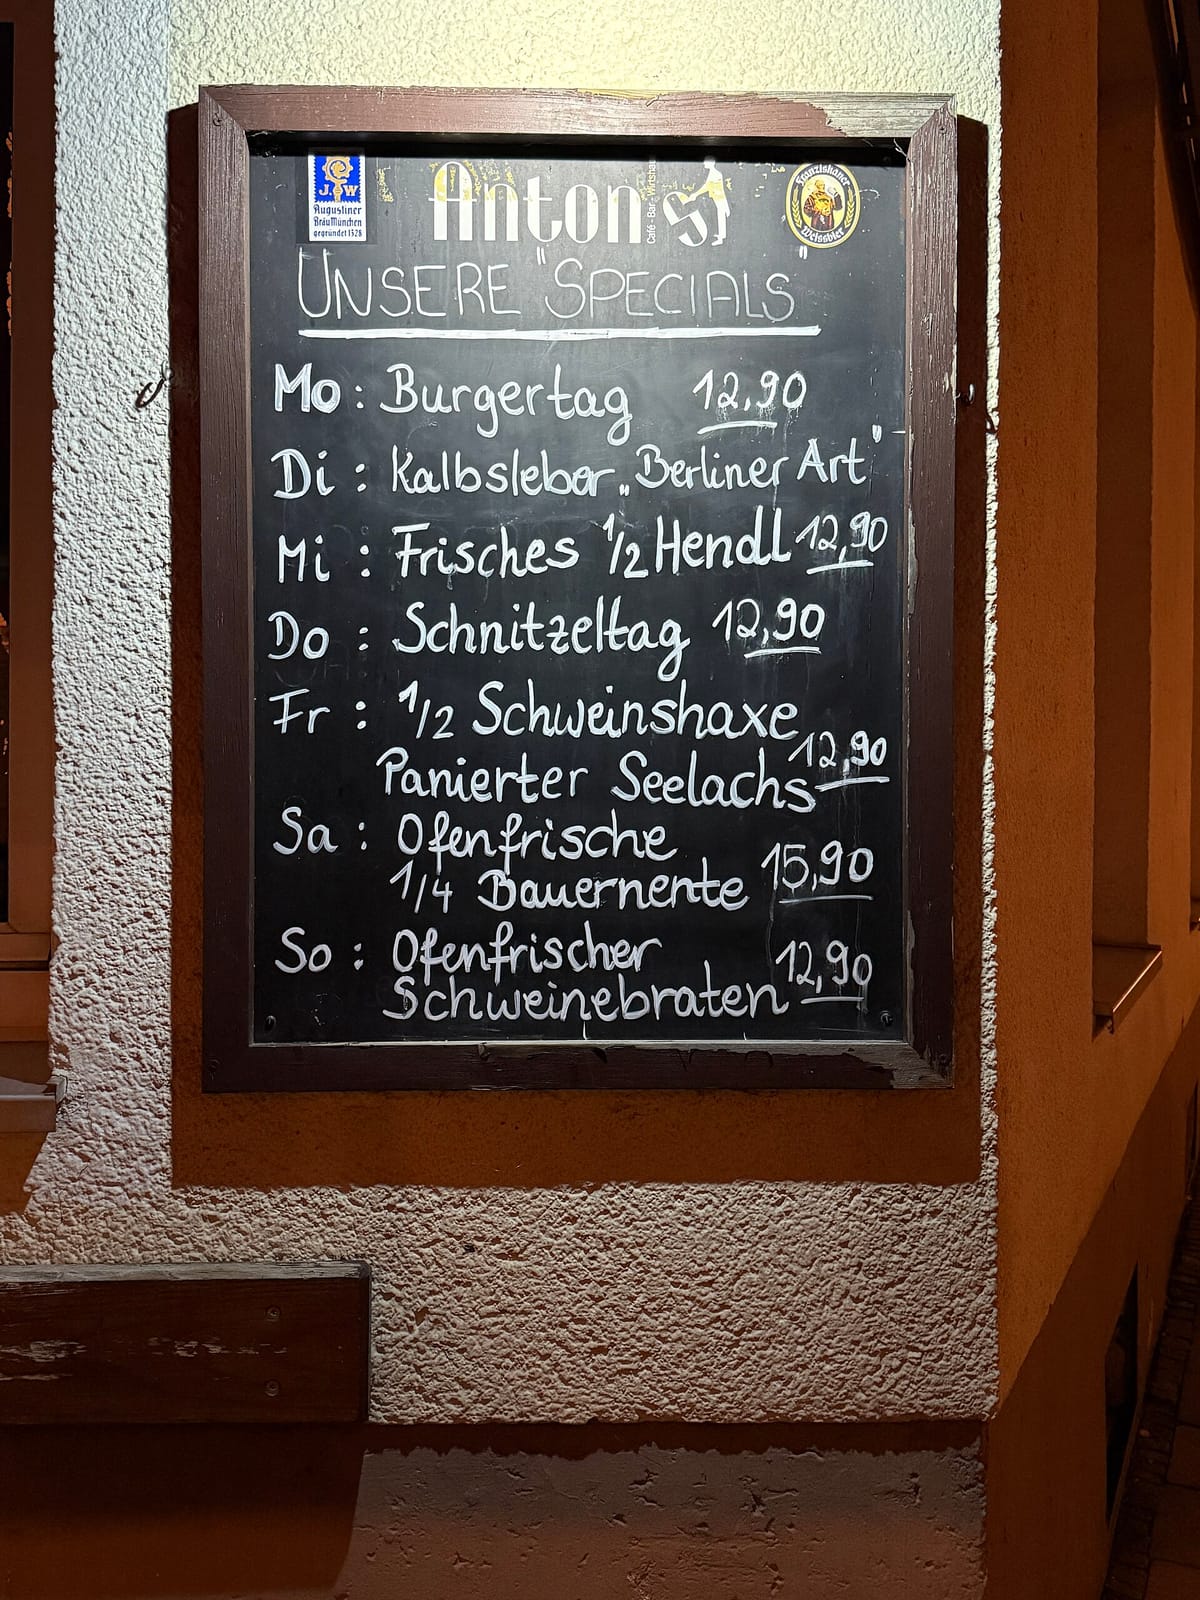 J. W
Augustiner
Bräu München
gegründet 1328
Anton
Café - Bar - Wirtshaus
Franziskaner
Weissbier
UNSERE "SPECIALS"
Mo : Burgertag 12,90
Di : Kalbsleber „Berliner Art"
Mi : Frisches 1/2 Hendl 12,90
Do : Schnitzeltag 12,90
Fr : 1/2 Schweinshaxe
Panierter Seelachs 12,90
Sa : Ofenfrische
1/4 Bauernente 15,90
So : Ofenfrischer
Schweinebraten 12,90